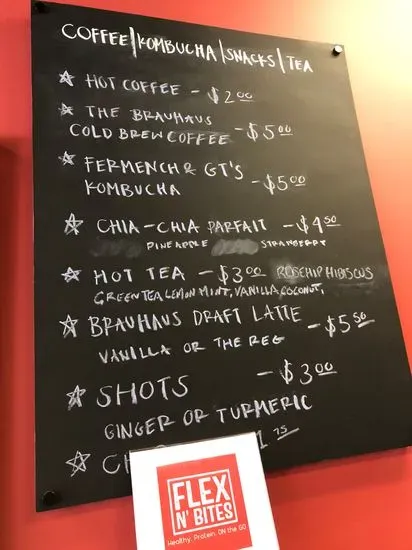 COFFEE|KOMBUCHA|SNACKS|TEA
☆ HOT COFFEE - $2.00
☆ THE BRAUHAUS
COLD BREW COFFEE - $5.00
☆ FERMENCH & GT'S
KOMBUCHA - $5.00
☆ CHIA-CHIA PARFAIT - $4.50
PINEAPPLE STRAWBERRY
☆ HOT TEA - $3.00 ROSEHIP HIBISCUS
GREEN TEA LEMON MINT, VANILLA COCONUT,
☆ BRAUHAUS DRAFT LATTE
VANILLA OR THE REG - $5.50
☆ SHOTS - $3.00
GINGER OR TURMERIC
FLEX
N' BITES
Healthy. Protein. ON the GO